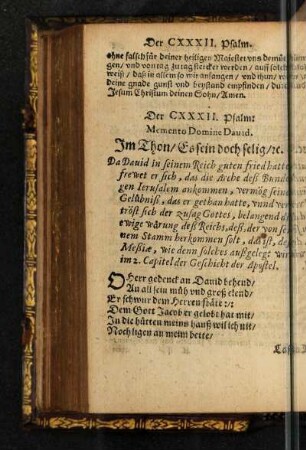 Der CXXXII. Psalm.
ohne falsch für deiner heiligen Majestet vns demü
gen/ vnd von tag zu tag stercker werden/ auff solche
weiß/ daß in allem so wir anfangen/ vnd thun/
deine gnade gunst vnd beystand empfinden/
Jesum Christum deinen Sohn/ Amen.
Der CXXXII. Psalm:
Memento Domine Dauid.
Im Thon/ Es sein doch selig/ ꝛc.
Da Dauid in seinem Reich guten fried hatte
frewet er sich, das die Arche deß Bundes
gen Ierusalem ankommen, vermög seines
Gelübniß, das er gethan hatte, vnnd ver
tröst sich der zusag Gottes, belangend
ewige wärung deß Reichs, deß, der von sei
nem Stamm herkommen solt, das ist, deß
Meßiæ, wie denn solches außgelegt wir
im 2. Capitel der Geschicht der Apostel.
O Herr gedenck an Dauid behend/
An all sein müh vnd groß elend/
Er schwur dem Herren stäte :/:
Dem Gott Jacob er gelobt hat mit/
In die hütten meins hauß wil ich nit/
Noch ligen an meim bette/